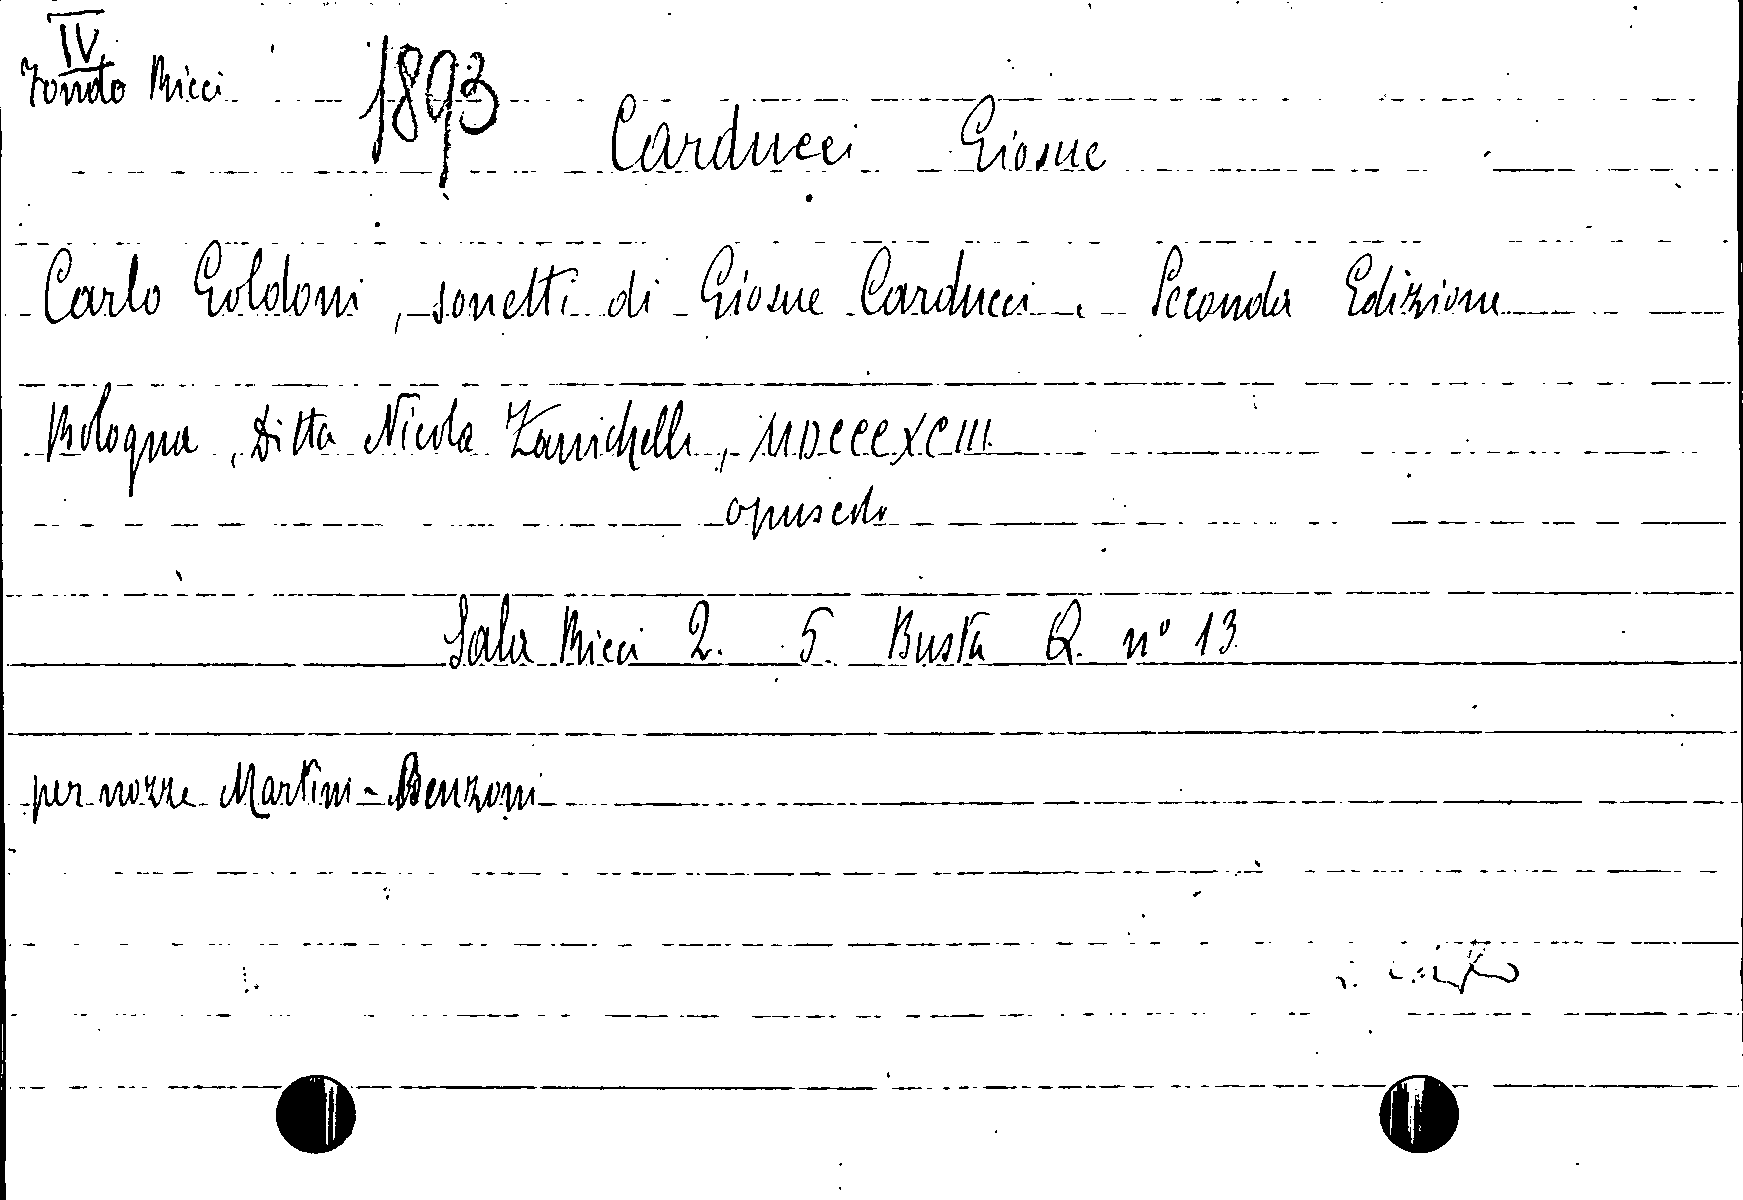 IV
Fondo Ricci
1893
Carducci Giosue
Carlo Goldoni, sonetti di Giosue Carducci. Seconda Edizione
Bologna, Ditta Nicola Zanichelli, MDCCCXCIII.
opuscolo
Sala Ricci 2. 5. Busta Q. n° 13
per nozze Martini-Benzoni